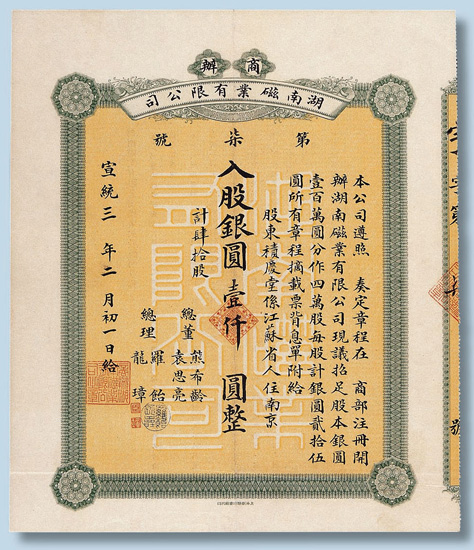 商辦
湖南磁業有限公司
第柒號
本公司遵照 奏定章程在 商部注冊開
辦湖南磁業有限公司現議招足股本銀圓
壹百萬圓分作四萬股每股計銀圓貳拾伍
圓所有章程摘載票背息單附給
股東積慶堂係江蘇省人住南京
入股銀圓壹仟圓整
計肆拾股
總董 熊希齡
袁思亮
總理 羅飴
龍璋
宣統三年二月初一日給